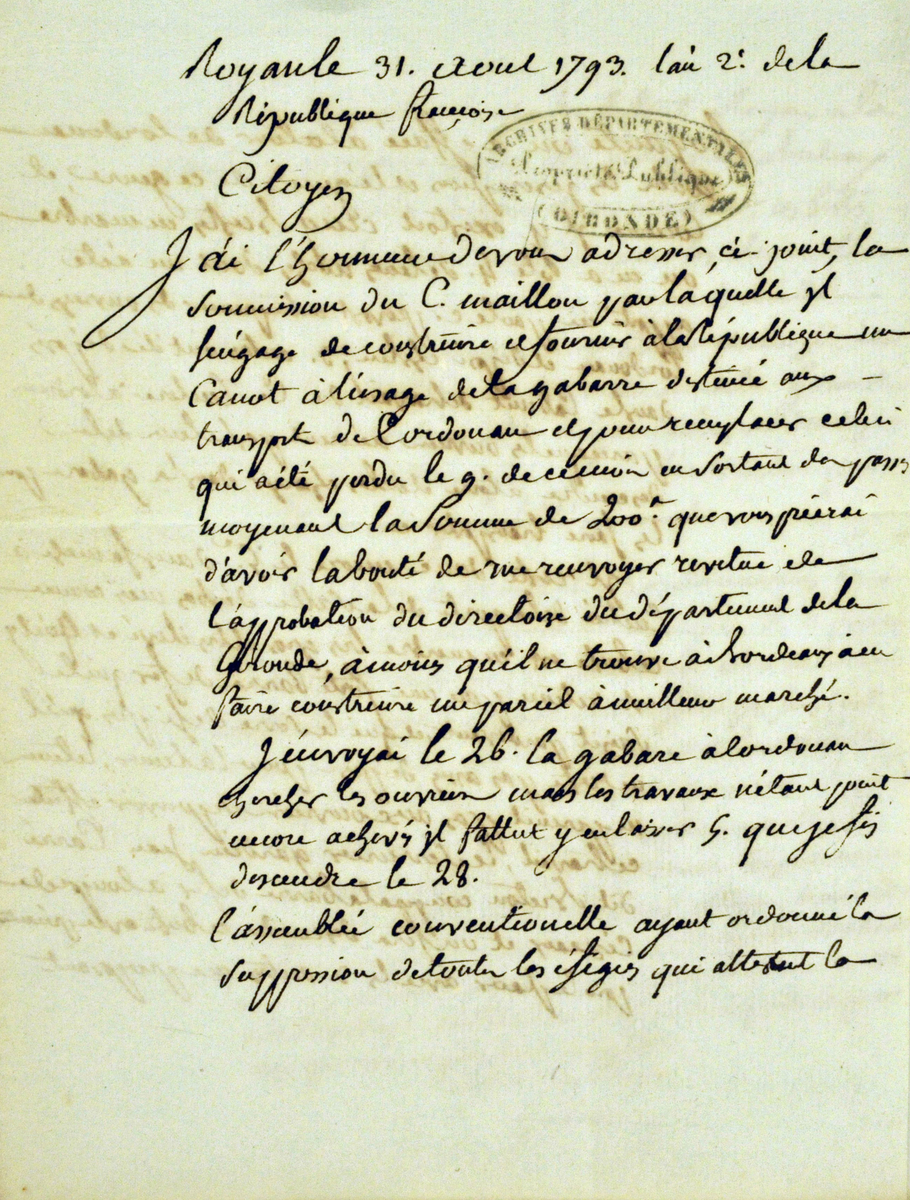 Royan le 31. Aout 1793. l'an 2e. de la
République françoise
ARCHIVES DÉPARTEMENTALES
Propriété Publique
(GIRONDE)
Citoyen
J'ai l'honneur de vous adresser, ci-joint, la
soumission du C. maillou par laquelle jl
s'éngage de construire et fournir à la République un
Canot à l'usage de la gabarre destinée aux
transports de Cordouan et pour remplacer celui
qui a été perdu le 9. de ce mois en sortant des passes
moyenant la somme de 200 que vous
d'avoir la bonté de me renvoyer revetue de
l'approbation du directoire du département de la
Gironde, àmoins qu'il ne trouve à Bordeaux à en
faire construire un pariel à meilleur marché.
J'énvoyai le 26. la gabare à Cordouan
chercher les ouvriers mais les travaux n'étant point
encore achevés jl fallut y en laisser 5. que je fis
descendre le 28.
l'assemblée conventionelle ayant ordonné la
suppression de toutes les éfigies qui attestent la